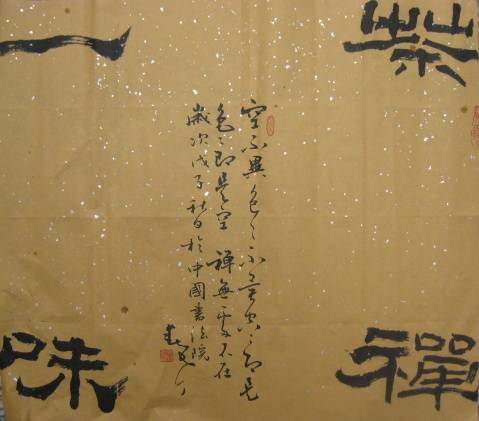 茶禪
一味
空不異色〻不異空〻即是
色〻即是空 禪無處不在
歲次戊子秋日於中國書法院